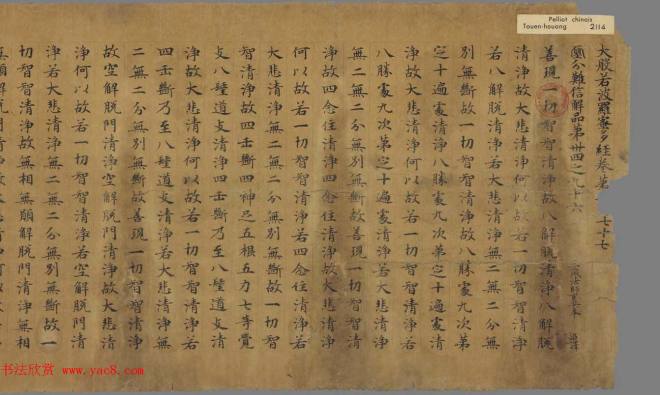 Pelliot chinois
Touen-houang 2114
大般若波羅蜜多經卷第 七十七
初分難信解品第卅四之九十六
善現一切智智清淨故八解脫清淨八解脫
清淨故大悲清淨何以故若一切智智清淨
若八解脫清淨若大悲清淨無二無二分無
別無斷故一切智智清淨故八勝處九次第
定十遍處清淨八勝處九次第定十遍處清
淨故大悲清淨何以故若一切智智清淨若
八勝處九次第定十遍處清淨若大悲清淨
無二無二分無別無斷故善現一切智智清
淨故四念住清淨四念住清淨故大悲清淨
何以故若一切智智清淨若四念住清淨若
大悲清淨無二無二分無別無斷故一切智
智清淨故四正斷四神足五根五力七等覺
支八聖道支清淨四正斷乃至八聖道支清
淨故大悲清淨何以故若一切智智清淨若
四正斷乃至八聖道支清淨若大悲清淨無
二無二分無別無斷故善現一切智智清淨
故空解脫門清淨空解脫門清淨故大悲清
淨何以故若一切智智清淨若空解脫門清
淨若大悲清淨無二無二分無別無斷故一
切智智清淨故無相無願解脫門清淨無相
書法欣赏 www.yac8.com